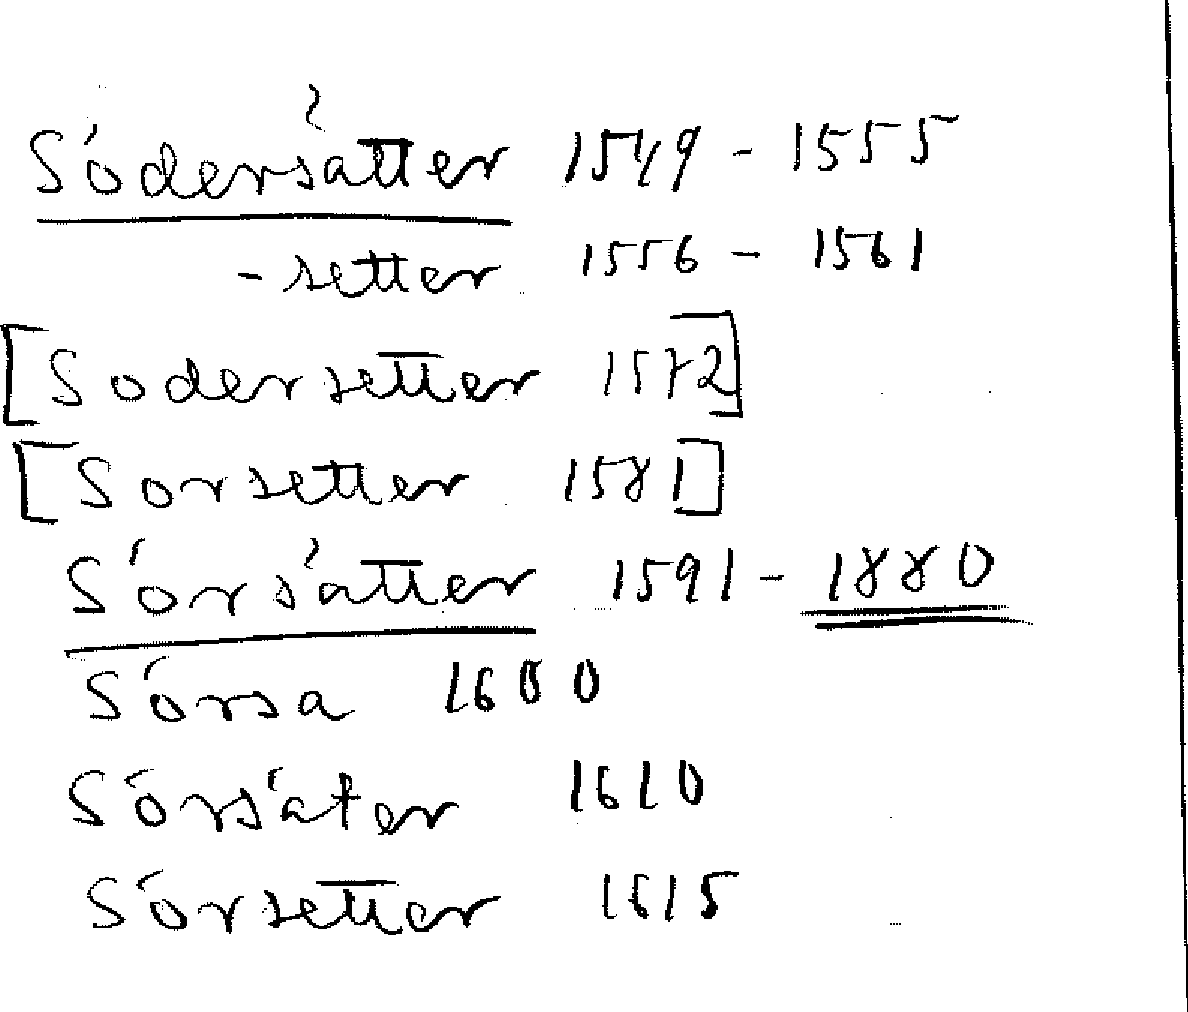 Södersätter 1549 - 1555
-setter 1556 - 1561
[Sodersetter 1572]
[Sorsetter 1581]
Sörsätter 1591 - 1880
Sörsa 1600
Sörsäter 1610
Sörsetter 1615